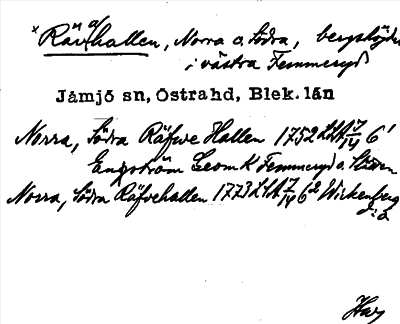 × Rävahallen, Norra o. Södra, bergshöjder
i västra Femmeryd
Jämjö sn, Östrahd, Blek. län
Norra, Södra Räfwe Hallen 1752 LSA 7/14 6¹
Engström Geom K Femmeryd o.
Norra, Södra Räfvehallen 1773 LSA 7/14 6² Wickenberg
d:o